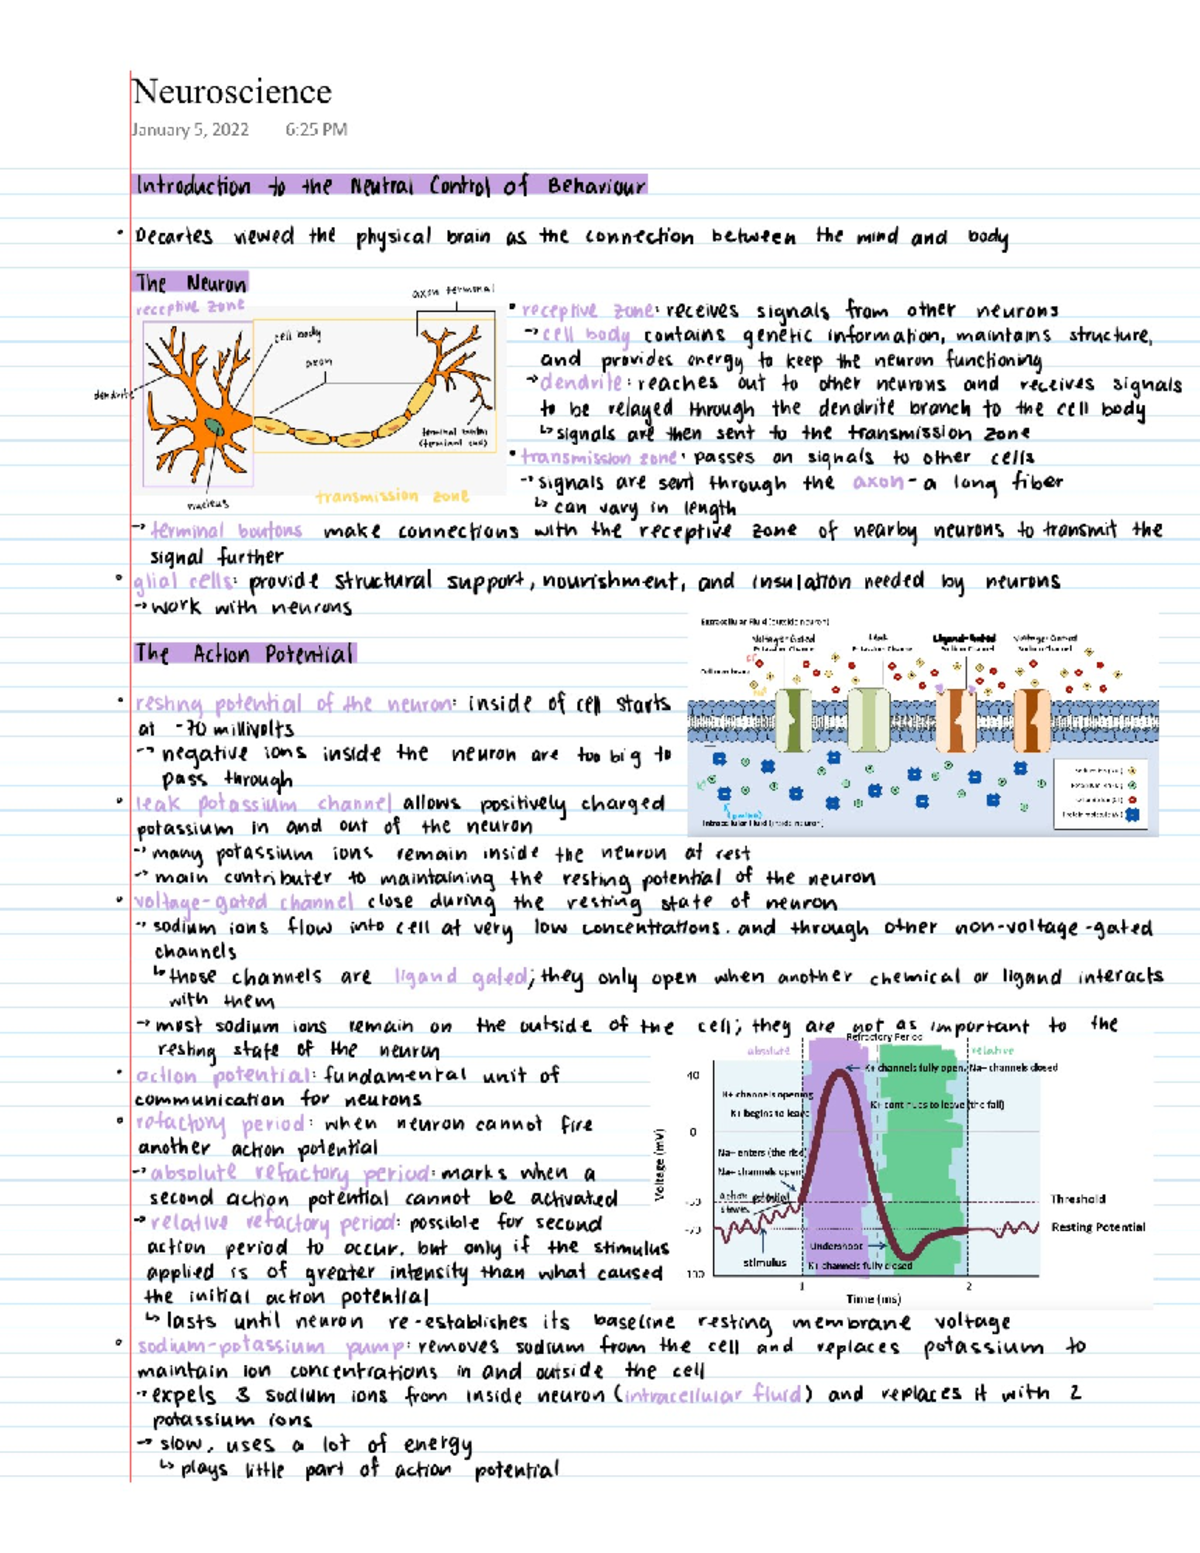 Neuroscience
January 5, 2022 6:25 PM
Introduction to the Neutral Control of Behaviour
• Decartes viewed the physical brain as the connection between the mind and body
The Neuron
receptive zone
axon terminal
cell body
axon
dendrite
terminal bouton
(terminal end)
nucleus
transmission zone
• receptive zone: receives signals from other neurons
→ cell body contains genetic information, maintains structure,
and provides energy to keep the neuron functioning
→ dendrite: reaches out to other neurons and receives signals
to be relayed through the dendrite branch to the cell body
↳ signals are then sent to the transmission zone
• transmission zone: passes on signals to other cells
→ signals are sent through the axon - a long fiber
↳ can vary in length
→ terminal boutons make connections with the receptive zone of nearby neurons to transmit the
signal further
• glial cells: provide structural support, nourishment, and insulation needed by neurons
→ work with neurons
The Action Potential
Extracellular Fluid (outside neuron)
Voltage-Gated
Potassium Channel
Leak
Potassium Channel
Ligand-Gated
Sodium Channel
Voltage-Gated
Sodium Channel
Intracellular Fluid (inside neuron)
• resting potential of the neuron: inside of cell starts
at -70 millivolts
→ negative ions inside the neuron are too big to
pass through
• leak potassium channel allows positively charged
potassium in and out of the neuron
→ many potassium ions remain inside the neuron at rest
→ main contributer to maintaining the resting potential of the neuron
• voltage-gated channel close during the resting state of neuron
→ sodium ions flow into cell at very low concentrations. and through other non-voltage-gated
channels
↳ those channels are ligand gated; they only open when another chemical or ligand interacts
with them
→ most sodium ions remain on the outside of the cell; they are not as important to the
resting state of the neuron
• action potential: fundamental unit of
communication for neurons
• refactory period: when neuron cannot fire
another action potential
→ absolute refactory period: marks when a
second action potential cannot be activated
→ relative refactory period: possible for second
action period to occur. but only if the stimulus
applied is of greater intensity than what caused
the initial action potential
↳ lasts until neuron re-establishes its baseline resting membrane voltage
Refractory Period
absolute
relative
K+ channels fully open, Na+ channels closed
K+ channels opening
K+ begins to leave
K+ continues to leave (the fall)
Na+ enters (the rise)
Na+ channels open
Threshold
Resting Potential
Undershoot
stimulus
K+ channels fully closed
Voltage (mV)
40
0
1
2
Time (ms)
• sodium-potassium pump: removes sodium from the cell and replaces potassium to
maintain ion concentrations in and outside the cell
→ expels 3 sodium ions from inside neuron (intracellular fluid) and replaces it with 2
potassium ions
→ slow, uses a lot of energy
↳ plays little part of action potential